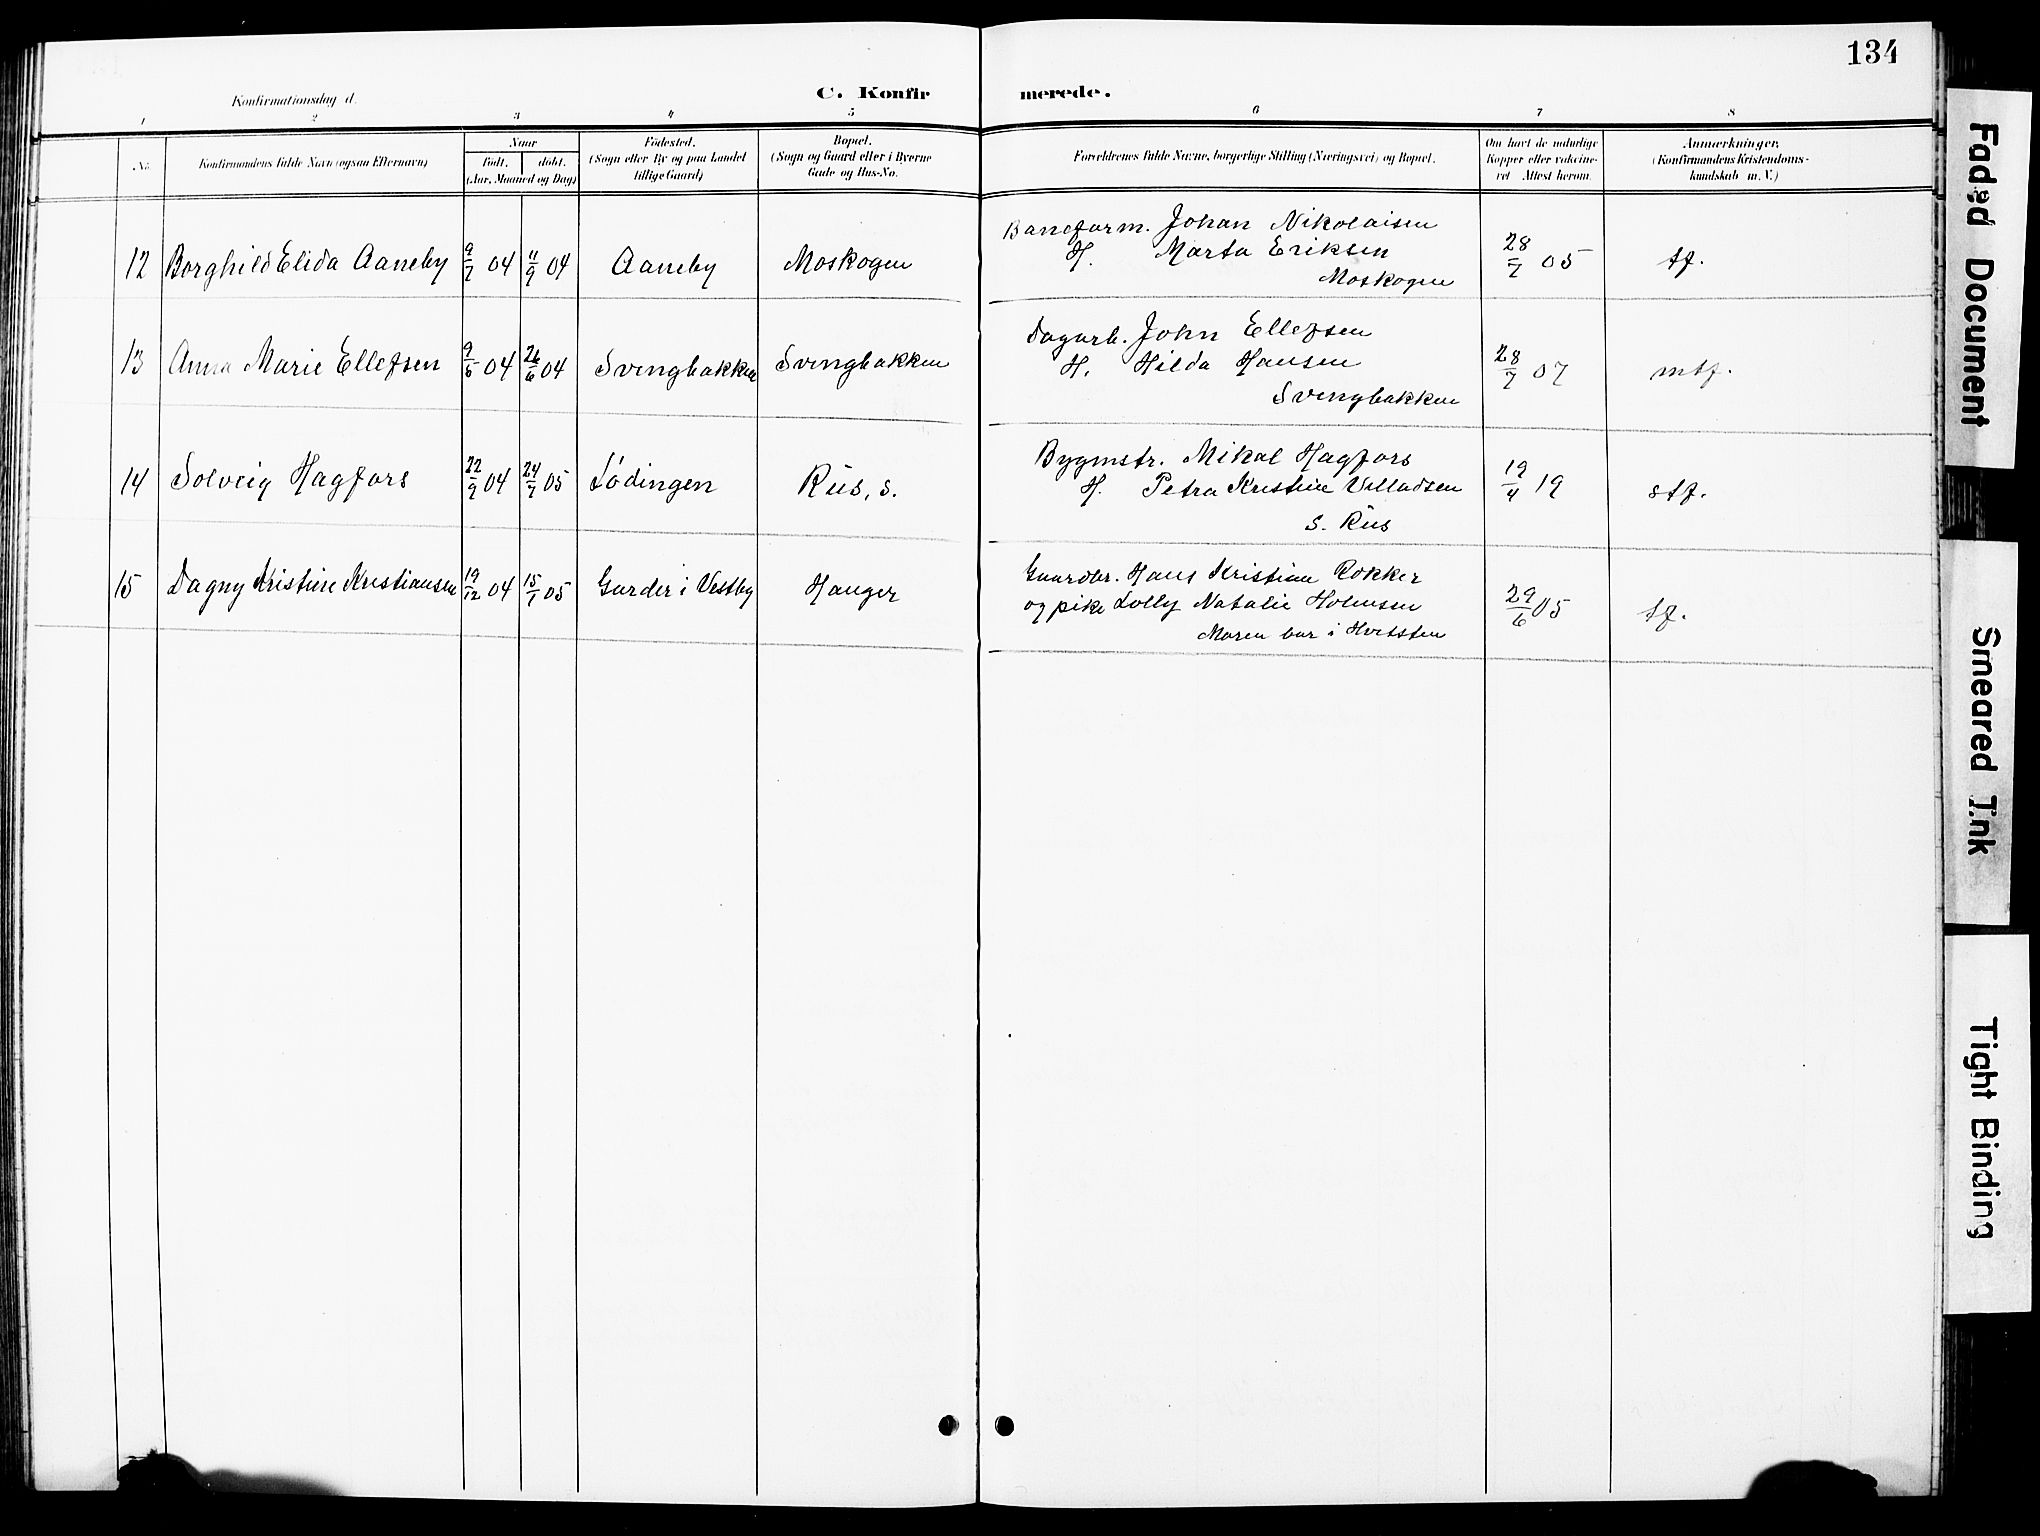 134
Konfirmationsdag d.
C. Konfir merede.
1 2 3 4 5 6 7 8
No.
Konfirmandens fulde Navn (ogsaa Efternavn)
Naar
født. døbt.
(Aar, Maaned og Dag)
Fødested.
(Sogn eller By og paa Landet
tillige Gaard)
Bopæl.
(Sogn og Gaard eller i Byerne
Gade og Hus-No.
Forældrenes fulde Navne, borgerlige Stilling (Næringsvei) og Bopæl.
Om havt de naturlige
Kopper eller vakcine-
ret Attest herom.
Anmærkninger,
(Konfirmandens Kristendoms-
kundskab m. V.)
12 Borghild Elida Aaneby 9/7 04 11/9 04 Aaneby Moskogen Baneform. Johan Nikolaisen
H. Marta Eriksen 28/7 05 tf.
Moskogen
13 Anna Marie Ellefsen 9/5 04 26/6 04 Svingbakken Svingbakken Dagarb. John Ellefsen
H. Hilda Hansen 28/7 07 mtf.
Svingbakken
14 Solveig Hagfors 22/9 04 24/7 05 Lødingen Riis, s. Bygmstr. Mikal Hagfors
H. Petra Kristine Villadsen 19/4 19 stf.
s. Riis
15 Dagny Kristine Kristiansen 19/12 04 15/1 05 Garder i Vestby Hauger Gaardbr. Hans Kristian Rokker
og pike Lolly Natalie Holmsen 29/6 05 tf.
Moren bor i Hvitsten
Faded Document
Smeared Ink
Tight Binding